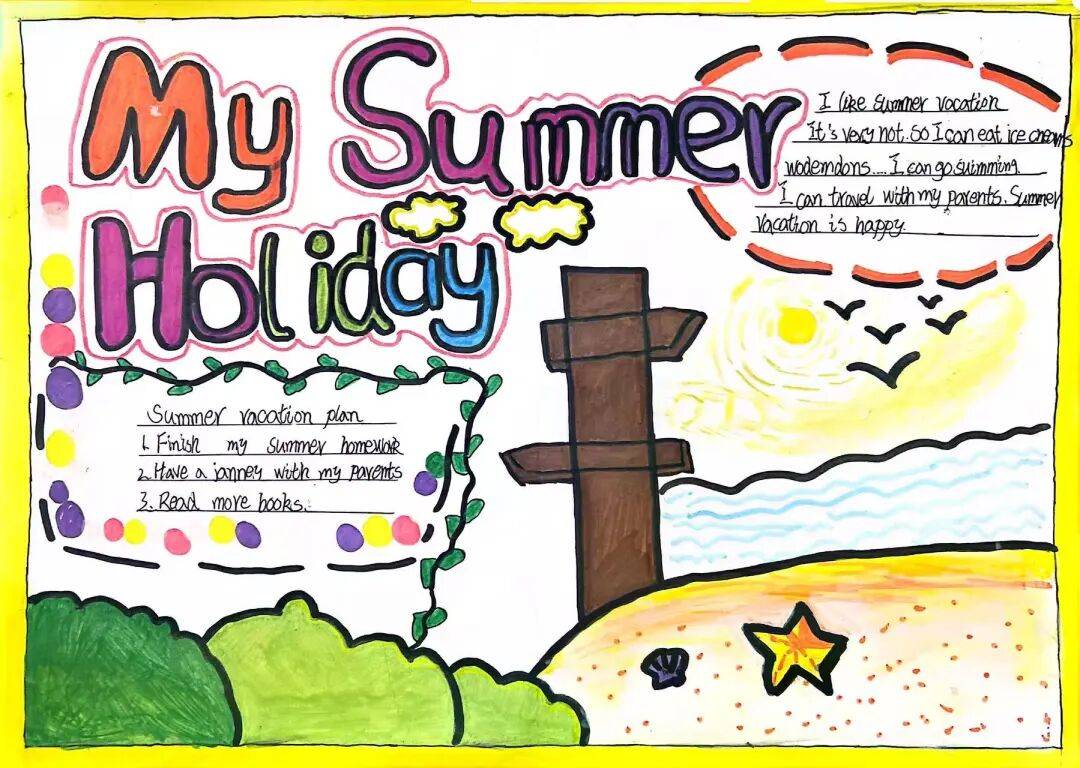 My Summer
Holiday
I like summer vacation
It's very hot. So I can eat ice creams
wademdons.... I can go swimming.
I can travel with my parents. Summer
vacation is happy.
Summer vacation plan
1. Finish my summer homework
2. Have a janney with my parents
3. Read more books.